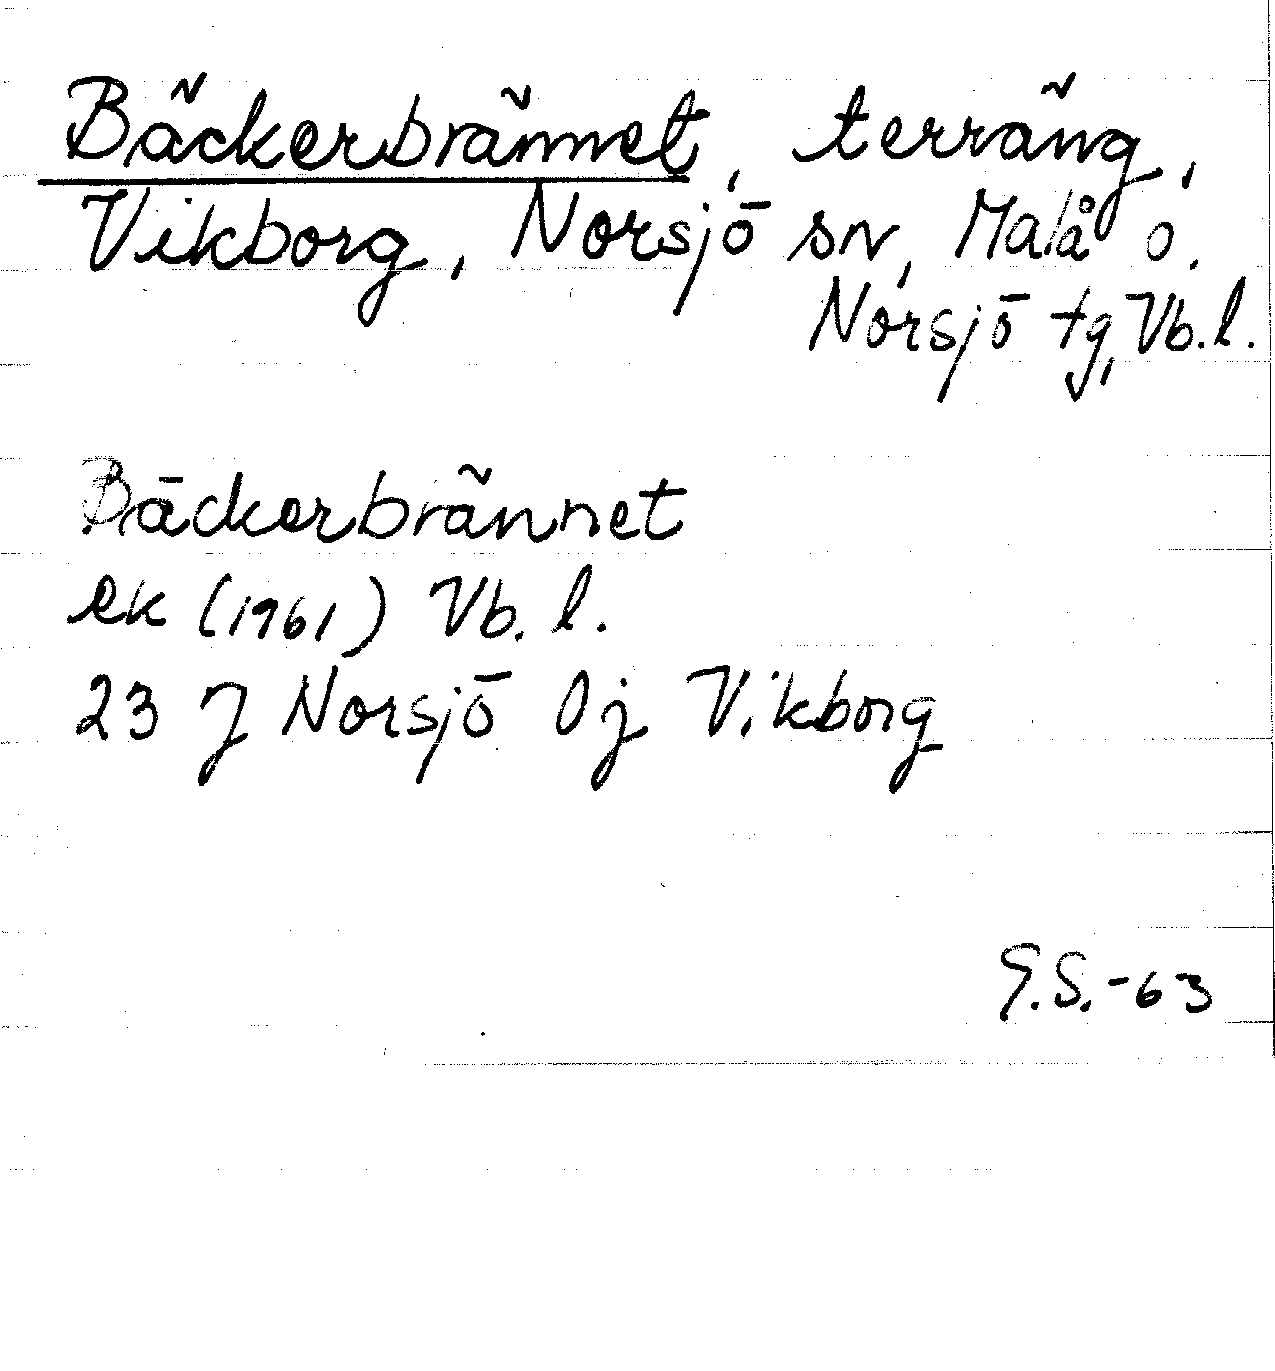 Bäckerbrännet, terräng,
Vikborg, Norsjö sn, Malå o.
Norsjö tg, Vb.l.
Bäckerbrännet
ek (1961) Vb. l.
23 J Norsjö 0j Vikborg
G.S.-63